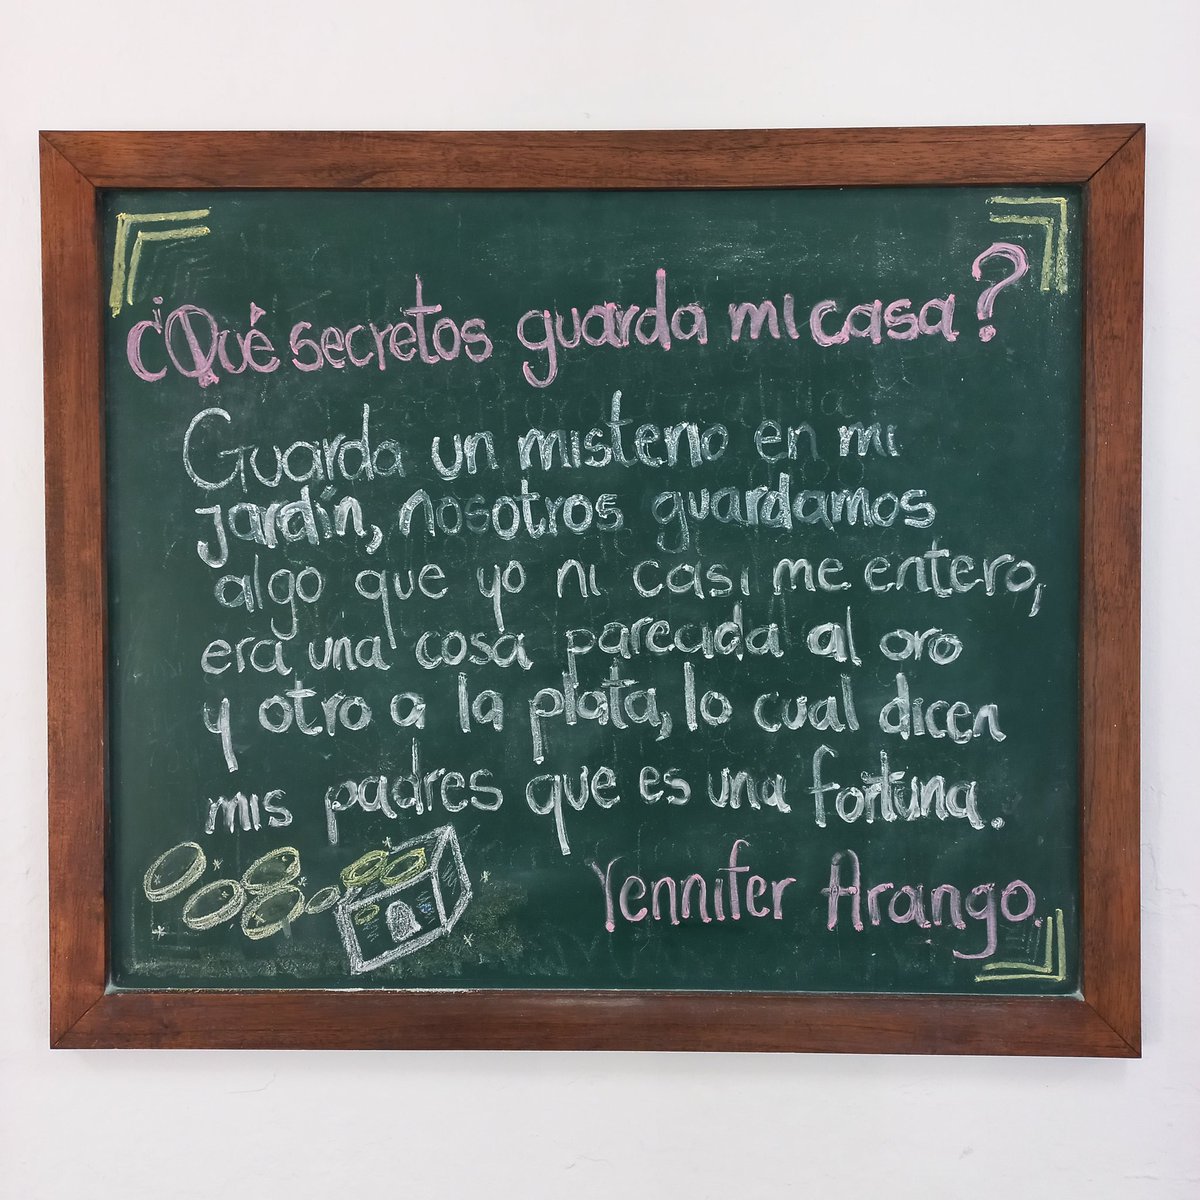 ¿Qué secretos guarda mi casa?
Guarda un misterio en mi
jardín, nosotros guardamos
algo que yo ni casi me entero,
era una cosa pareada al oro
y otro a la plata, lo cual dicen
mis padres que es una fortuna.
Yennifer Arango.